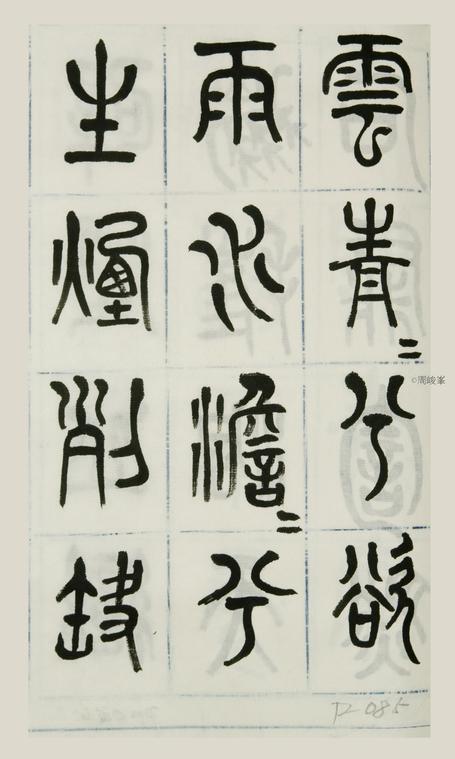 雲青〻兮欲
雨水澹〻兮
生煙列缺
©周峻峯
P 085